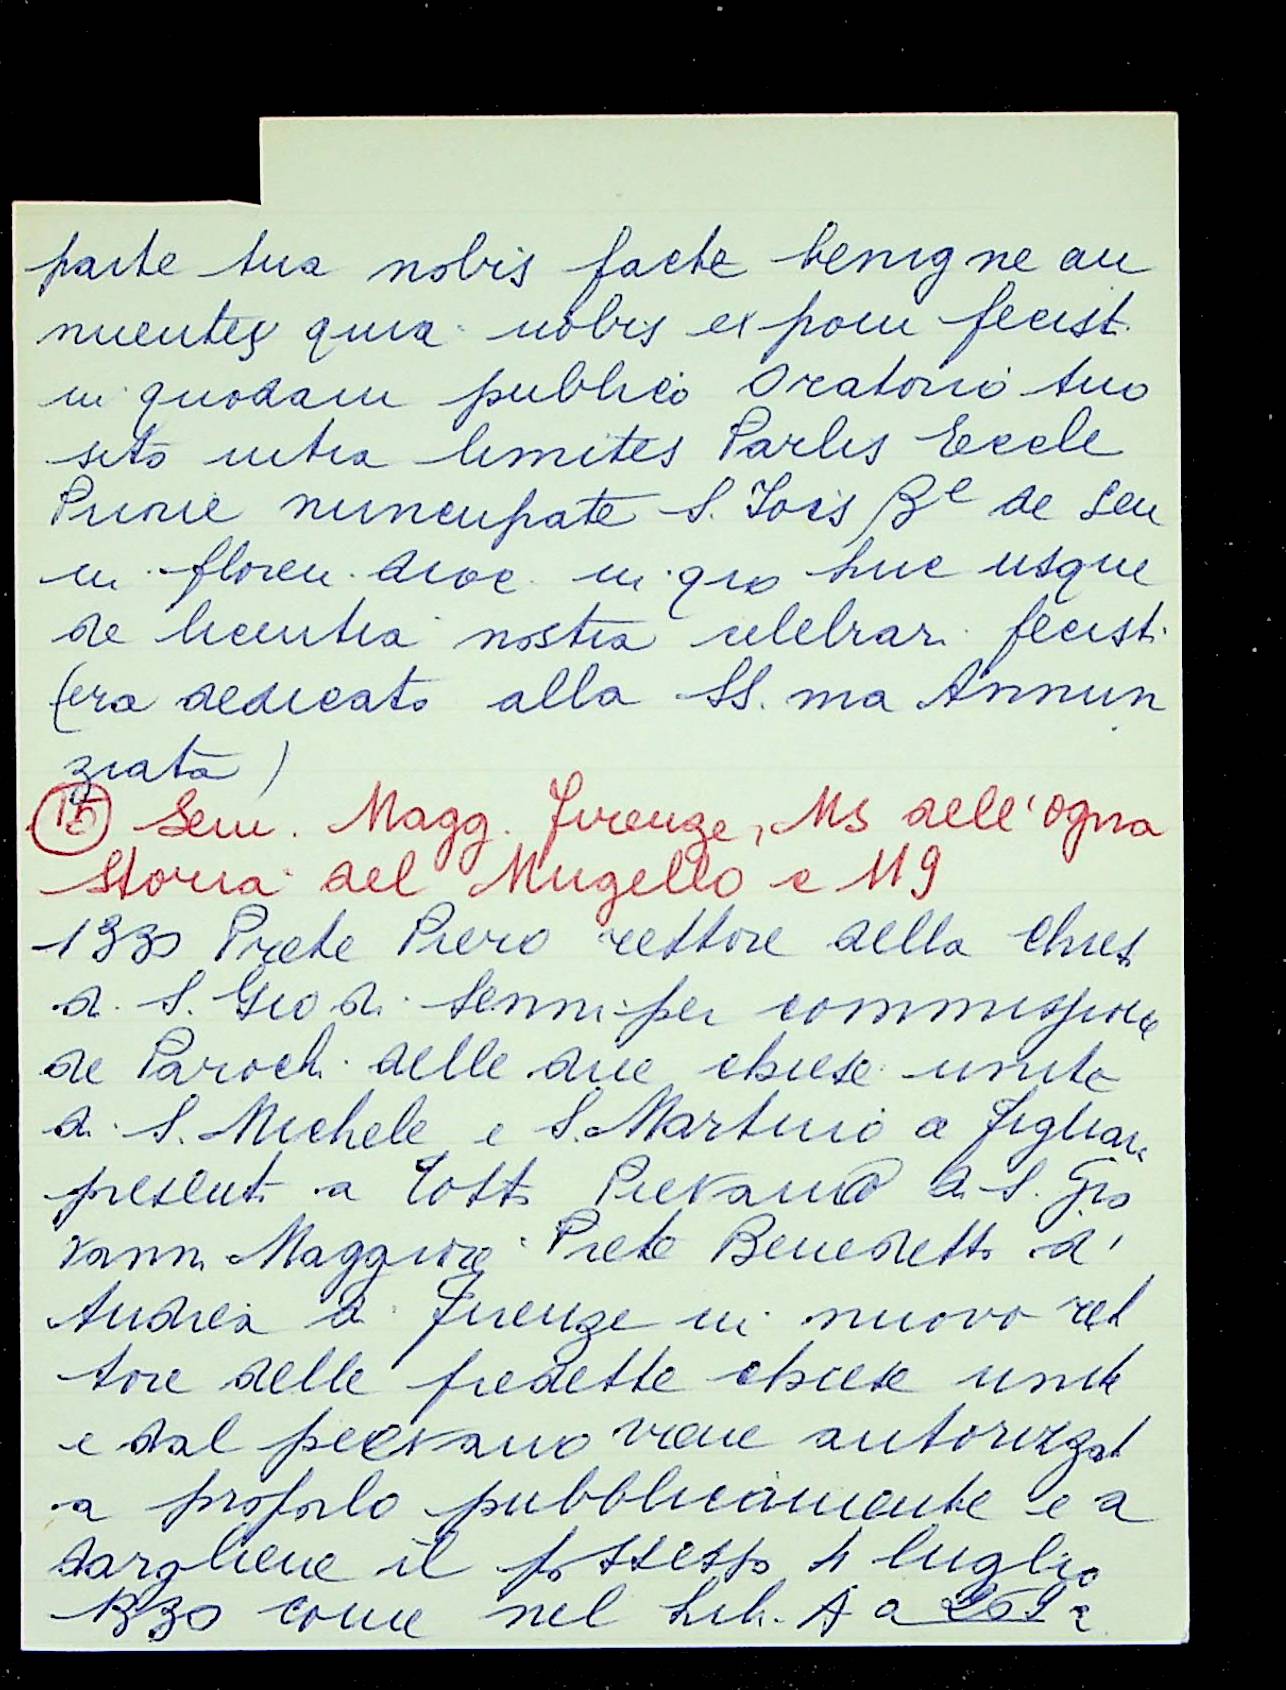 parte tua nobis facte benigne an
nuentes quia nobis exponi fecisti
in quodam publico Oratorio tuo
sito intra limites Parlis Eccle
Prioie nuncupate S. Jois Be de Sen
ni floren. dioc. in quo huc usque
de licentia nostra celebrari fecisti
(era dedicato alla SS.ma Annun
ziata)
15 Sem. Magg. Firenze, Ms dell'Ogna
Storia del Mugello c 119
1330 Prete Piero rettore della Chies
di S. Gio di Senni per commissione
de Parochi delle due chiese unite
di S. Michele e S. Martino a Figliari
presenti a Totto Pievano di S. Gio
vanni Maggiore Prete Benedetto d'
Andrea di Firenze in nuovo ret
tore delle predette chiese unite
e dal pievano viene autorizzat
a proporlo pubblicamente e a
dargliene il possesso 4 luglio
1330 come nel Lib. A a 259